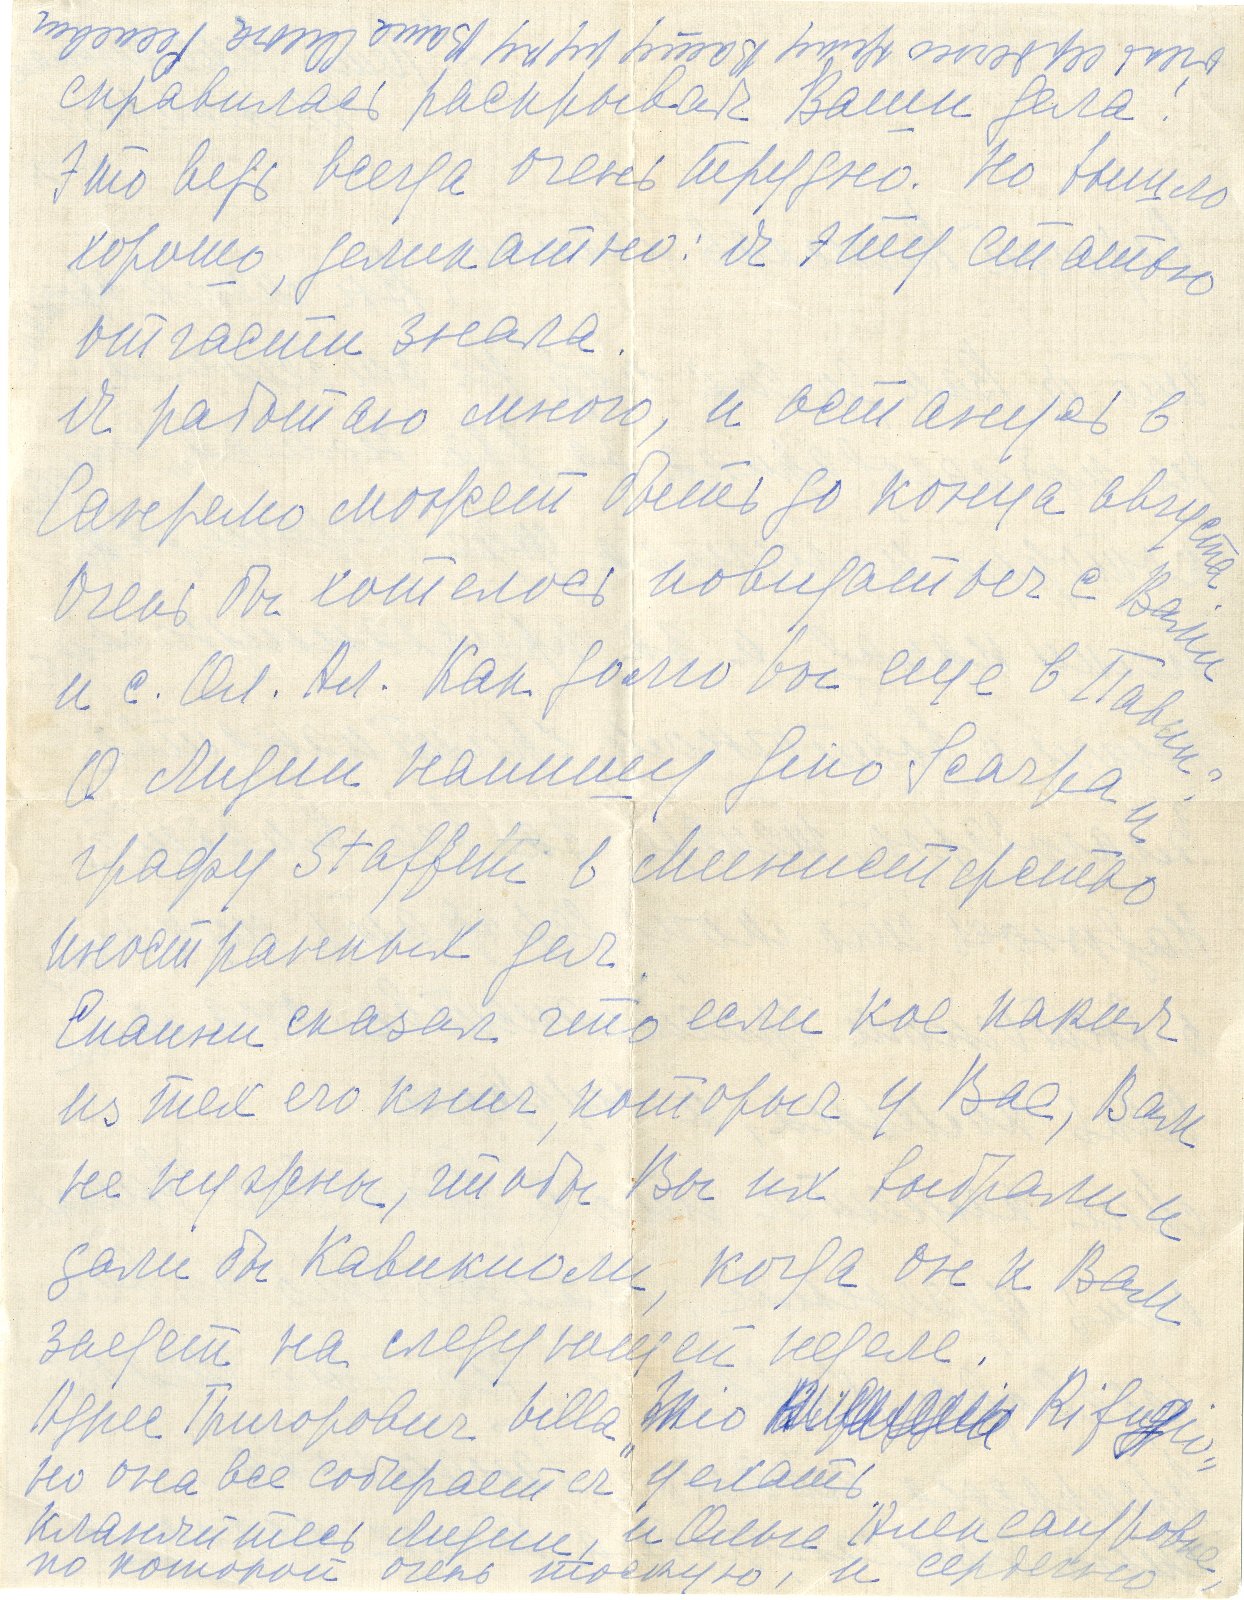 справилась раскрывая Ваши дела!
Это ведь всегда очень трудно. Но вышло
хорошо, деликатно: я эту статью
отчасти знала.
Я работаю много, и останусь в
Санремо может быть до конца августа
Очень бы хотелось повидаться с Вами
и с. Ол. Ал. Как долго вы еще в Павии?
О Лидии напишу Gino Scarpa и
графу Staffetti в Министерство
иностранных дел.
сказал что если кое какия
из тех его книг, которыя у Вас, Вам
не нужны, чтобы Вы их выбрали и
дали бы Кавикиоли, когда он к Вам
заедет на следующей неделе.
Адрес Григорович villa „Mio Rifugio"
но она все собирается уехать
Кланяйтесь Лидии, и Ольге Александровне,
по которой очень тоскую, и сердечно
очень сердечно жму Вашу руку Ваша Ольга